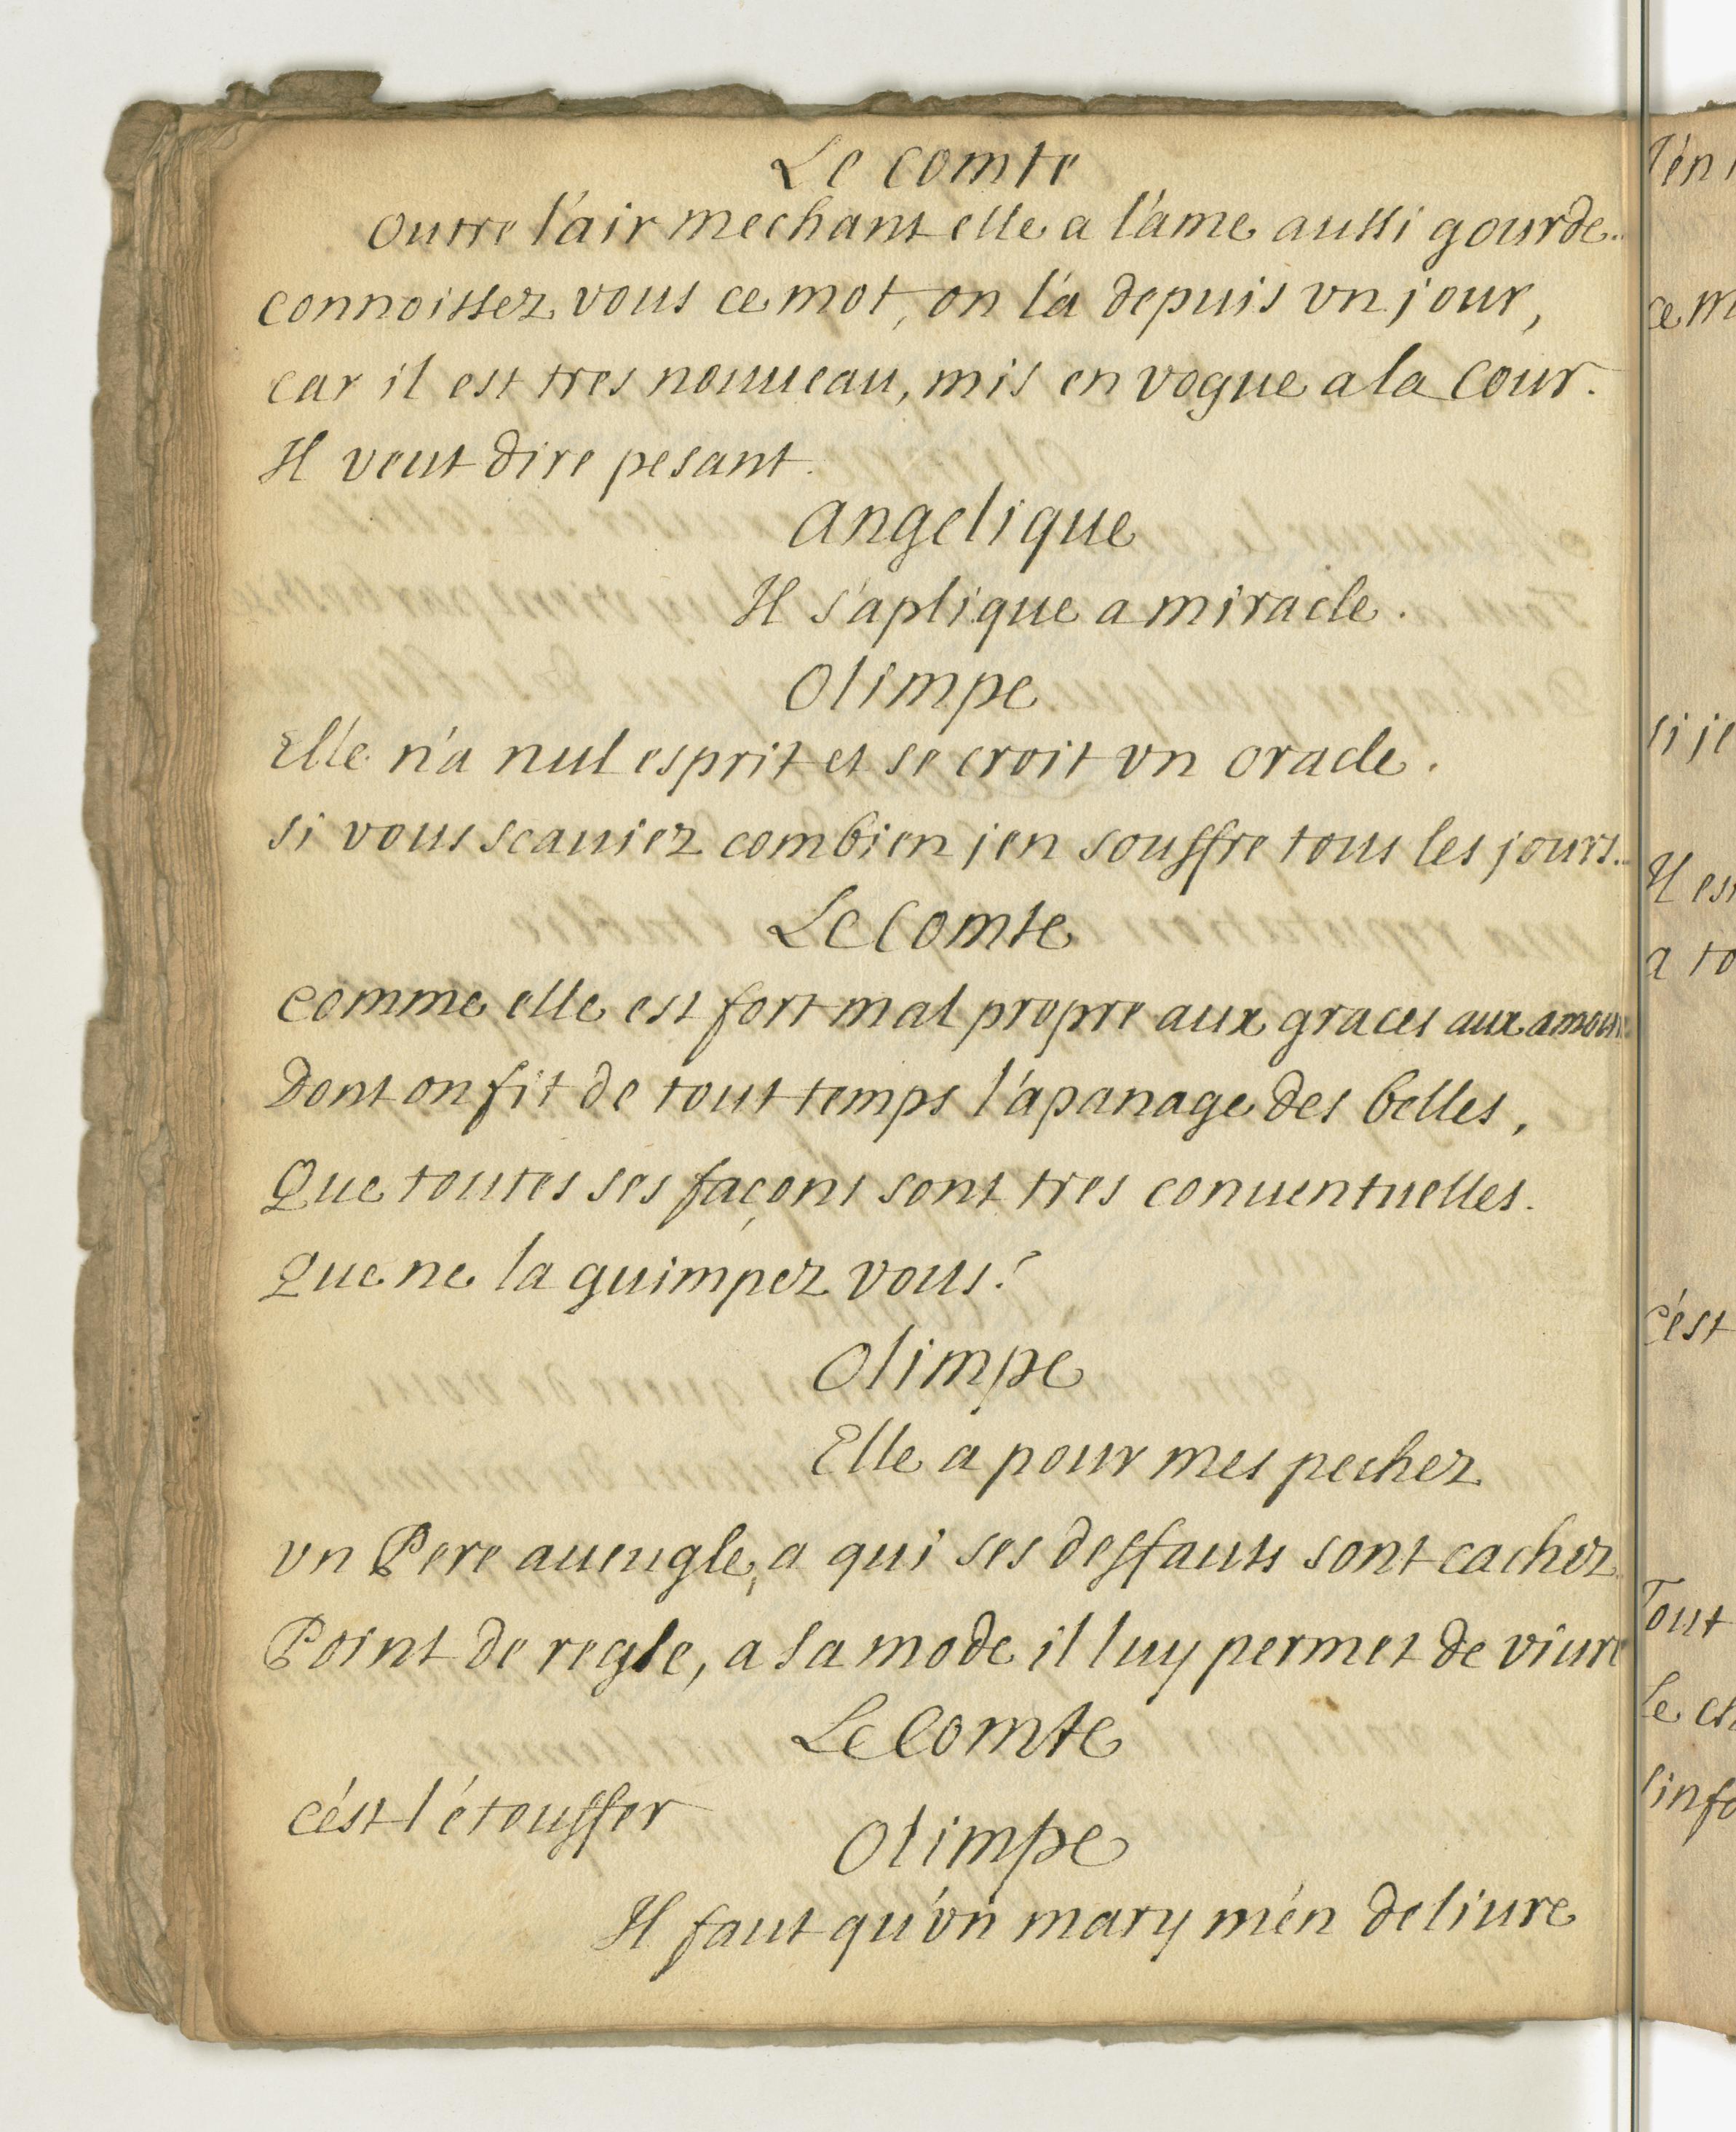 Le comte
outre l'air mechant elle a l'ame aussi gourde.
connoissez vous ce mot, on l'a depuis vn jour,
car il est tres nouueau, mis en vogue a la Cour.
Il veut dire pesant.
angelique
Il s'aplique a miracle.
Olimpe
Elle n'a nul esprit et se croit vn oracle.
si vous scauiez combien j'en souffre tous les jours.
Le Comte
comme elle est fort mal propre aux graces aux amours
Dont on fit de tout temps l'apanage des belles,
Que toutes ses façons sont tres conuentuelles.
Que ne la guimpez vous?
Olimpe
Elle a pour mes pechez
vn Pere aueugle, a qui ses deffauts sont cachez
Point de regle, a sa mode il luy permet de viure
Le Comte
c'est l'étouffer
Olimpe
Il faut qu'vn mary m'en deliure
l'en
ce
si je
Il est
a to
c'est
Tout
Le